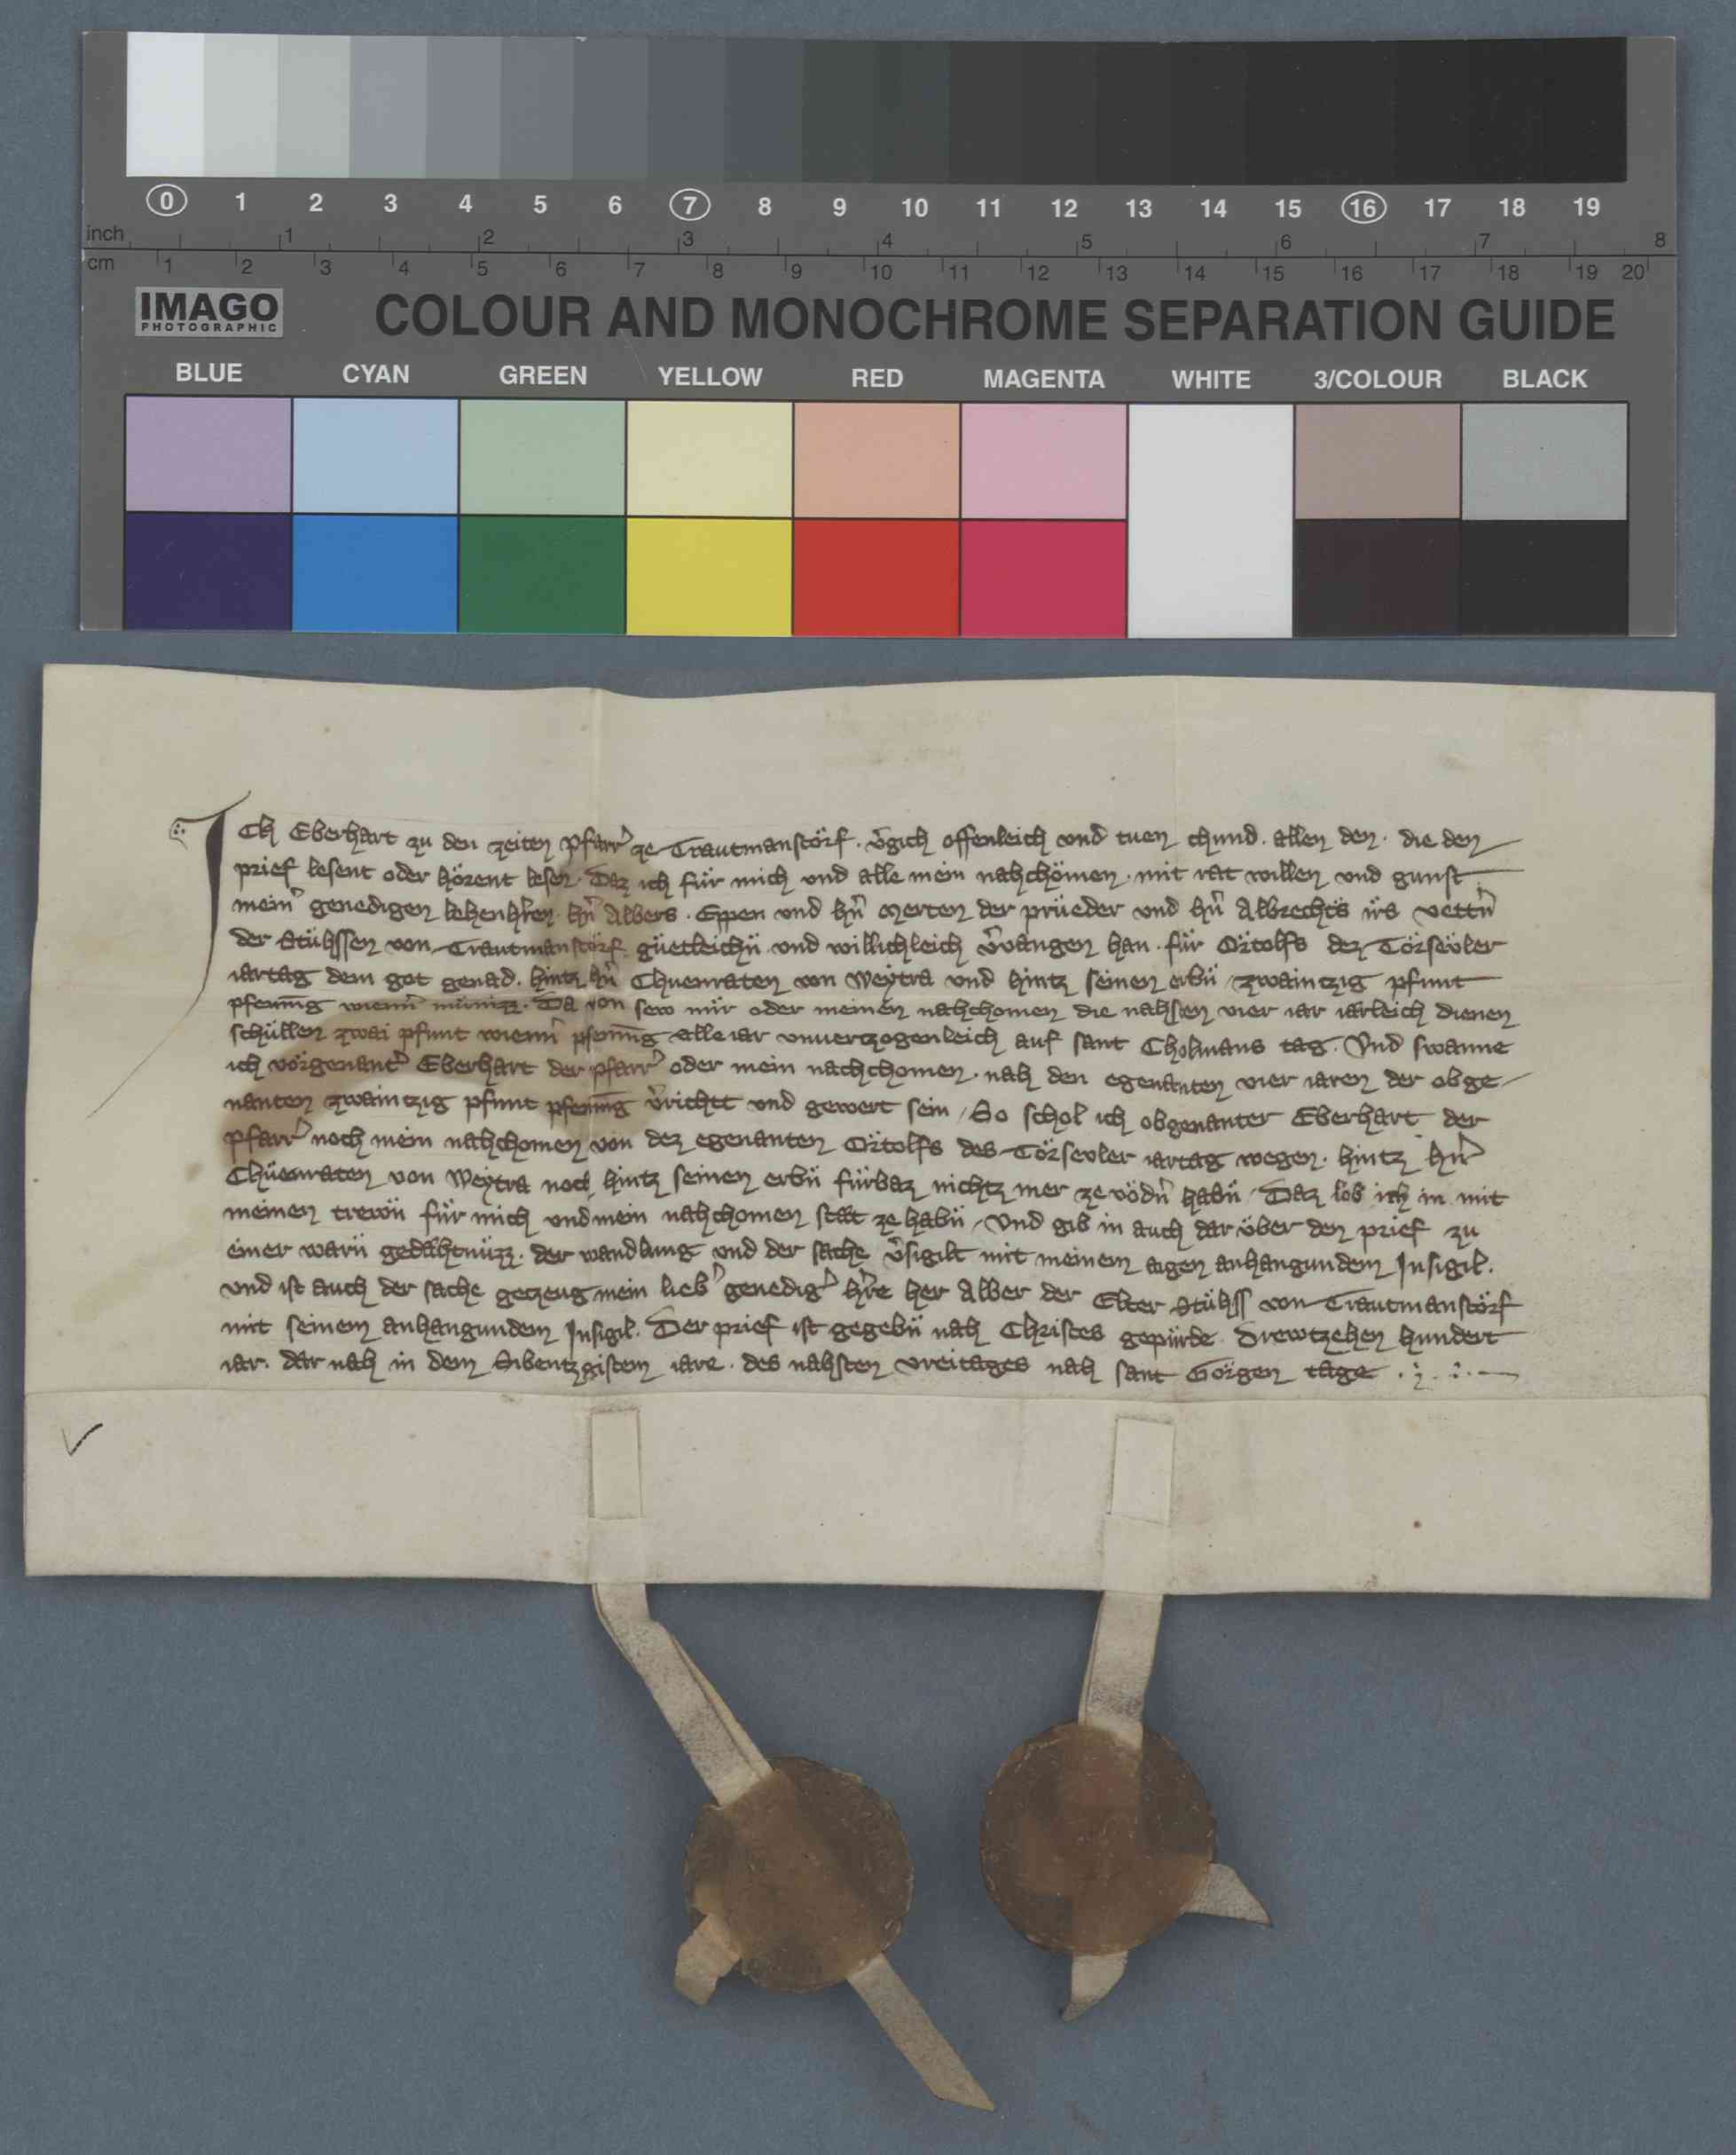 0 1 2 3 4 5 6 7 8 9 10 11 12 13 14 15 16 17 18 19
inch 1 2 3 4 5 6 7 8
cm 1 2 3 4 5 6 7 8 9 10 11 12 13 14 15 16 17 18 19 20
IMAGO
PHOTOGRAPHIC
COLOUR AND MONOCHROME SEPARATION GUIDE
BLUE CYAN GREEN YELLOW RED MAGENTA WHITE 3/COLOUR BLACK
Ich Eberhart zu den zeiten pfarr̾ ze Trautmanstörf. v̾gich offenleich und tuen chund. allen den. die den
prief lesent oder hörent lesen. Daz ich für mich und alle mein nahchömen. mit rat willen und gunst
mein̾ genedigen lehenhr̾en. hn̄ Albers. Eppen und hn̄ Merten der prüeder und hn̄ Albrechts irs vettn̾
der Stühssen von Trautmanstörf. güetleichn̄ und willichleich v̾vangen han. für Ortolfs dez Törsevler
iartag dem got genad. hintz hn̄ Chuenraten von Weytra und hintz seinen erbn̄ zwaintzig pfunt
pfenīng wienn̾ münizz. Da von sew mir oder meinen nahchomen die nahsten vier iar iärleich dienen
schüllen zwai pfunt wienn̾ pfenīng alle iar unvertzogenleich auf sant Cholmans tag. Und swanne
ich vörgenant̾ Eberhart der pfarr̾ oder mein nachchomen. nah den egenanten vier iaren der obge-
nanten zwaintzig pfunt pfenīng v̾richtt und gewert sein. So schol ich obgenanter Eberhart der
pfarr̾ noch mein nahchomen von dez egenanten Ortolfs des Törsevler iartag wegen. hintz hn̾
Chüenraten von Weytra noch hintz seinen erbn̄ fürbaz nichtz mer ze vödn̾ habn̄. Daz lob ich in mit
meinen trewn̄ für mich und mein nahchomen stät ze habn̄. Und gib in auch dar über den prief zu
einer warn̄ gedähtnüzz. der wandlung und der sache v̾sigilt mit meinem aigen anhangundem Insigil.
und ist auch der sache getzeug mein lieb̾ genedig̾ hr̾re her Alber der Elter Stühss von Trautmanstörf
mit seinem anhangundem Insigil. Der prief ist gegebn̄ nah Christes gepürde. Drewtzehen hundert
iar. dar nah in dem Sibentzgistem iare. des nahsten vreitages nah sant Görgen tage